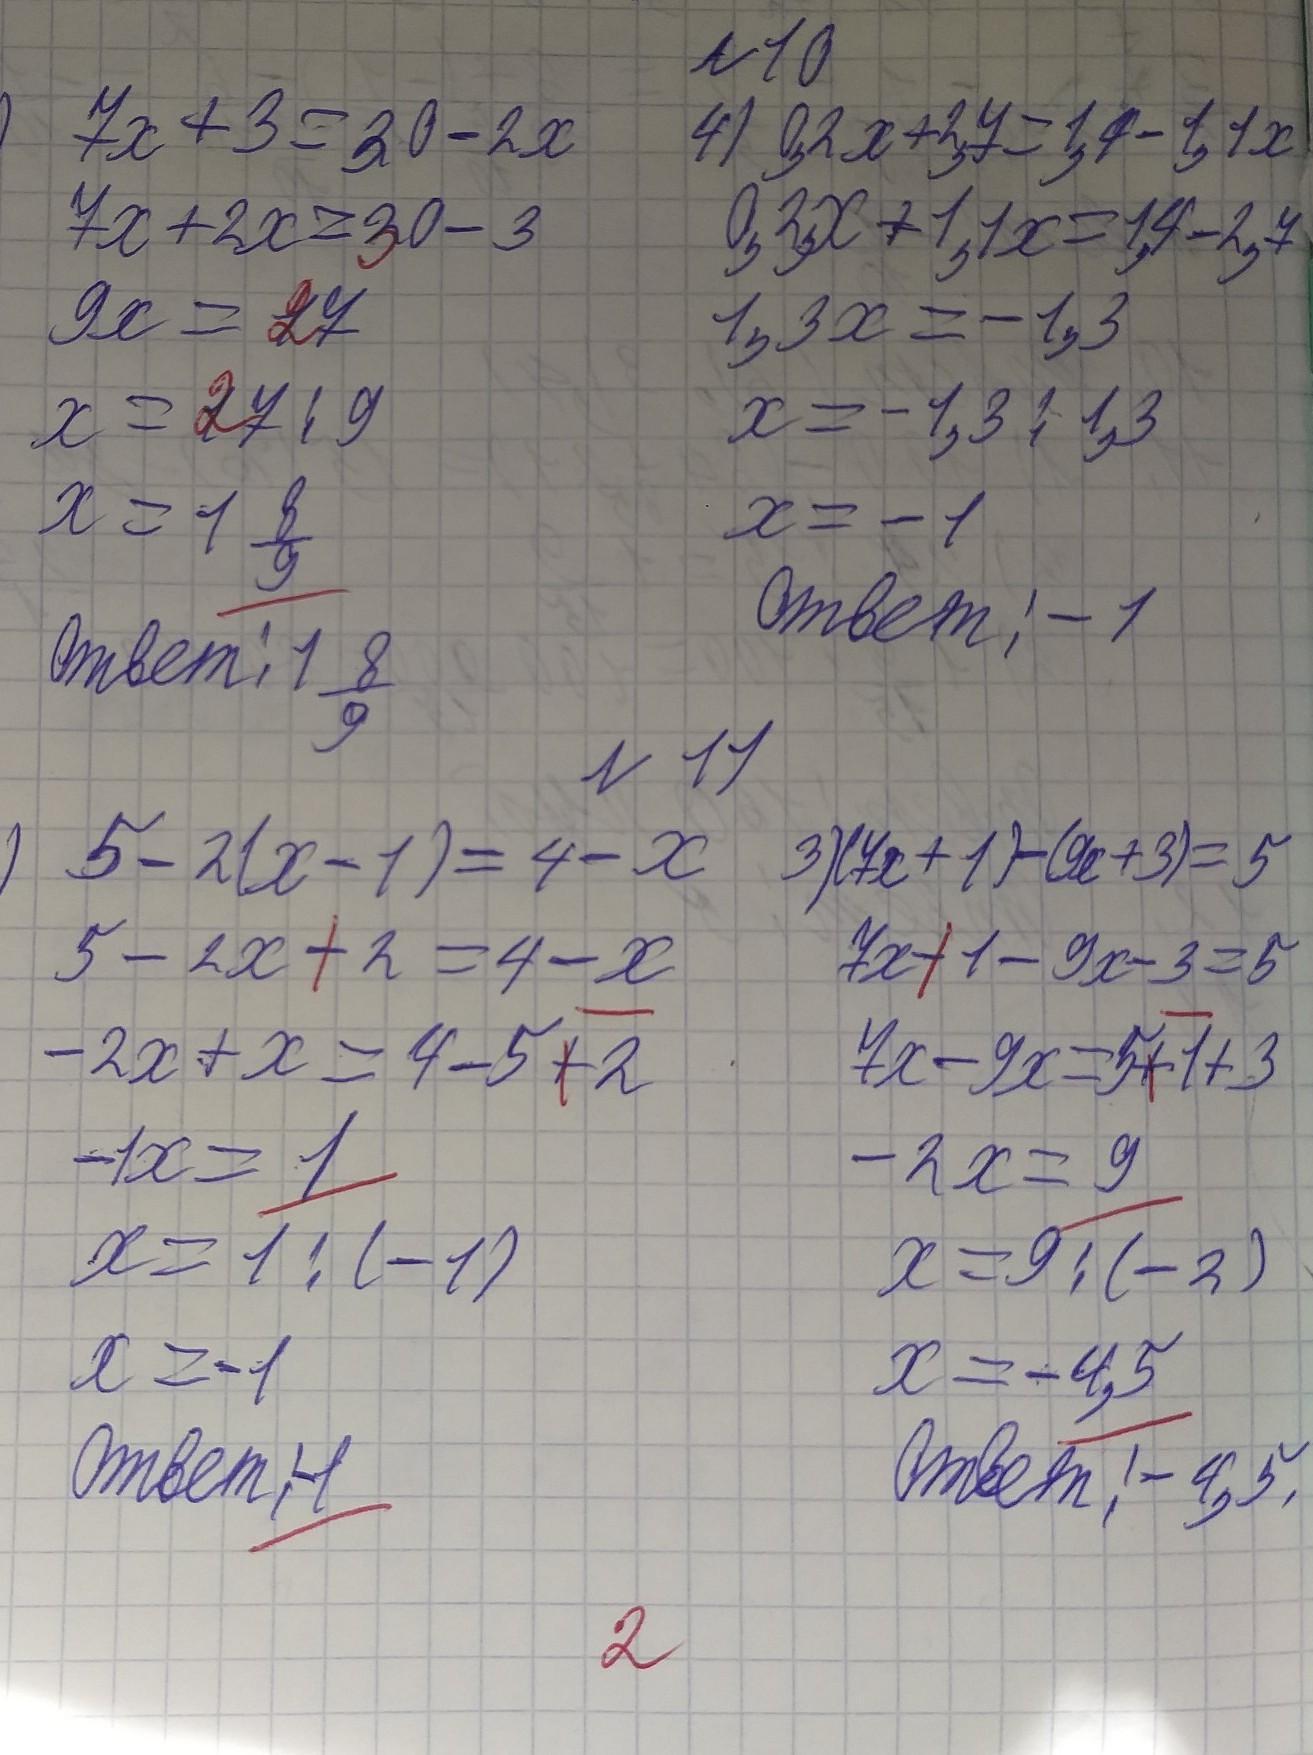 №10
) 7x+3=30-2x
7x+2x=30-3
9x=27
x=27:9
x=1 8/9
Ответ: 1 8/9
4) 0,2x+2,7=1,4-1,1x
0,2x+1,1x=1,4-2,7
1,3x=-1,3
x=-1,3:1,3
x=-1
Ответ: -1
№11
) 5-2(x-1)=4-x
5-2x+2=4-x
-2x+x=4-5+2
-1x=1
x=1:(-1)
x=-1
Ответ: -1
3)(7x+1)-(9x+3)=5
7x+1-9x-3=5
7x-9x=5+1+3
-2x=9
x=9:(-2)
x=-4,5
Ответ: -4,5.
2